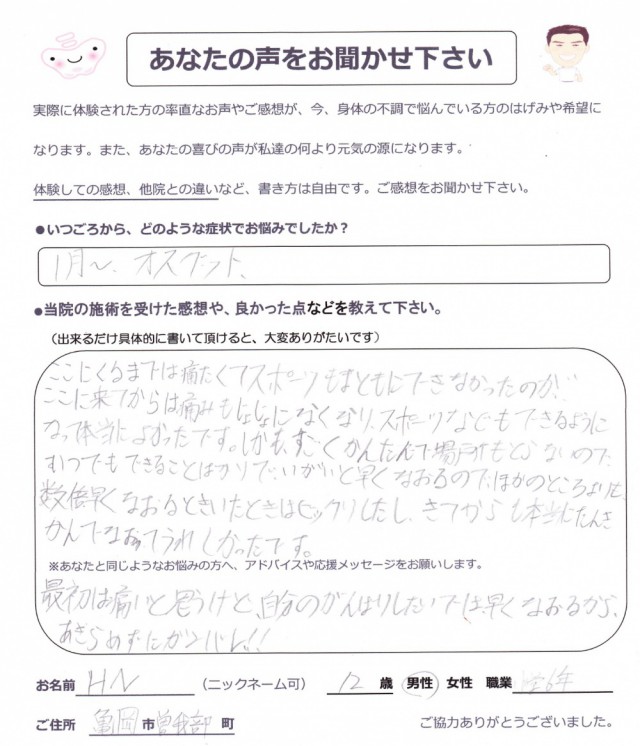 あなたの声をお聞かせ下さい
実際に体験された方の率直なお声やご感想が、今、身体の不調で悩んでいる方のはげみや希望に
なります。また、あなたの喜びの声が私達の何より元気の源になります。
体験しての感想、他院との違いなど、書き方は自由です。ご感想をお聞かせ下さい。
●いつごろから、どのような症状でお悩みでしたか？
1月〜、オスグット、
●当院の施術を受けた感想や、良かった点などを教えて下さい。
（出来るだけ具体的に書いて頂けると、大変ありがたいです）
ここにくるまでは痛たくてスポーツもまともにできなかったのが、
ここに来てからは痛みもなくなり、スポーツなどもできるように
なって本当によかったです。しかも、すごくかんたんで場所もとらないので、
いつでもできることばかりで、いがいと早くなおるのでほかのところよりも、
数倍早くなおるときいたときはビックリしたし、きてからも本当にたんき
かんでなおってうれしかったです。
※あなたと同じようなお悩みの方へ、アドバイスや応援メッセージをお願いします。
最初は痛いと思うけど、自分のがんばりしだいでは、早くなおるから、
あきらめずにガンバレ!!
お名前 HN （ニックネーム可） 12 歳 男性 女性 職業 6年
ご住所 亀岡 市 曽我部 町 ご協力ありがとうございました。